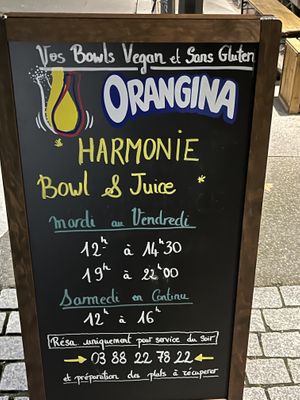 Vos Bowls Vegan et Sans Gluten
ORANGINA
* HARMONIE
Bowl & Juice *
Mardi au Vendredi
12h à 14h30
19h à 22h00
Samedi en Continu
12h à 16h
Résa. uniquement pour service du soir
→ 03 88 22 78 22 ←
et préparation des plats à récuperer